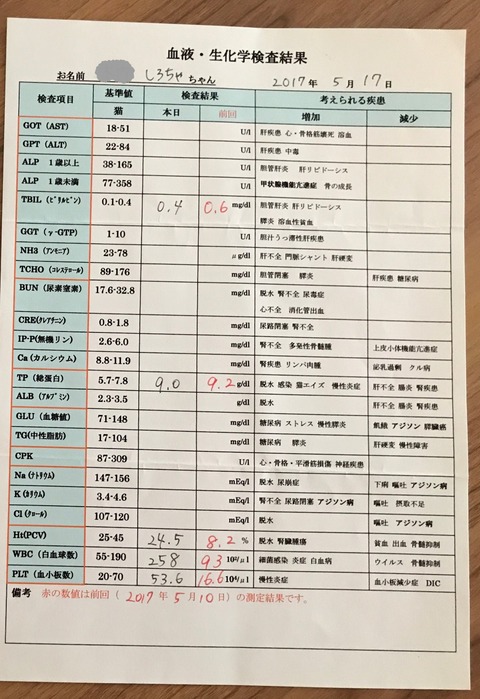 血液・生化学検査結果
お名前 しろちゃ ちゃん 2017年 5月 17日
検査項目 基準値 検査結果 考えられる疾患
猫 本日 前回 増加 減少
GOT (AST) 18-51 U/l 肝疾患 心・骨格筋壊死 溶血
GPT (ALT) 22-84 U/l 肝疾患 中毒
ALP 1歳以上 38-165 U/l 胆管肝炎 肝リピドーシス
ALP 1歳未満 77-358 U/l 甲状腺機能亢進症 骨の成長
TBIL (ビリルビン) 0.1-0.4 0.4 0.6 mg/dl 胆管肝炎 肝リピドーシス
膵炎 溶血性貧血
GGT (γ-GTP) 1-10 U/l 胆汁うっ滞性肝疾患
NH3 (アンモニア) 23-78 μg/dl 肝不全 門脈シャント 肝硬変
TCHO (コレステロール) 89-176 mg/dl 胆管閉塞 膵炎 肝疾患 糖尿病
BUN (尿素窒素) 17.6-32.8 mg/dl 脱水 腎不全 尿毒症
心不全 消化管出血
CRE(クレアチニン) 0.8-1.8 mg/dl 尿路閉塞 腎不全
IP-P(無機リン) 2.6-6.0 mg/dl 腎不全 多発性骨髄腫 上皮小体機能亢進症
Ca (カルシウム) 8.8-11.9 mg/dl 腎疾患 リンパ肉腫 泌乳過剰 クル病
TP (総蛋白) 5.7-7.8 9.0 9.2 g/dl 脱水 感染 猫エイズ 慢性炎症 肝不全 腸炎 腎疾患
ALB (アルブミン) 2.3-3.5 g/dl 脱水 肝不全 腸炎 腎疾患
GLU (血糖値) 71-148 mg/dl 糖尿病 ストレス 慢性膵炎 飢餓 アジソン 膵臓癌
TG(中性脂肪) 17-104 mg/dl 糖尿病 膵炎 肝硬変 慢性障害
CPK 87-309 U/l 心・骨格・平滑筋損傷 神経疾患
Na (ナトリウム) 147-156 mEq/l 脱水 尿崩症 下痢 嘔吐 アジソン病
K (カリウム) 3.4-4.6 mEq/l 腎不全 尿路閉塞 アジソン病 嘔吐 摂取不足
Cl (クロール) 107-120 mEq/l 脱水 嘔吐 アジソン病
Ht(PCV) 25-45 24.5 8.2 % 脱水 腎臓腫瘍 貧血 出血 骨髄抑制
WBC (白血球数) 55-190 258 93 10²/μl 細菌感染 炎症 白血病 ウイルス 骨髄抑制
PLT (血小板数) 20-70 53.6 16.6 10⁴/μl 慢性炎症 血小板減少症 DIC
備考 赤の数値は前回( 2017年 5月 10日)の測定結果です。